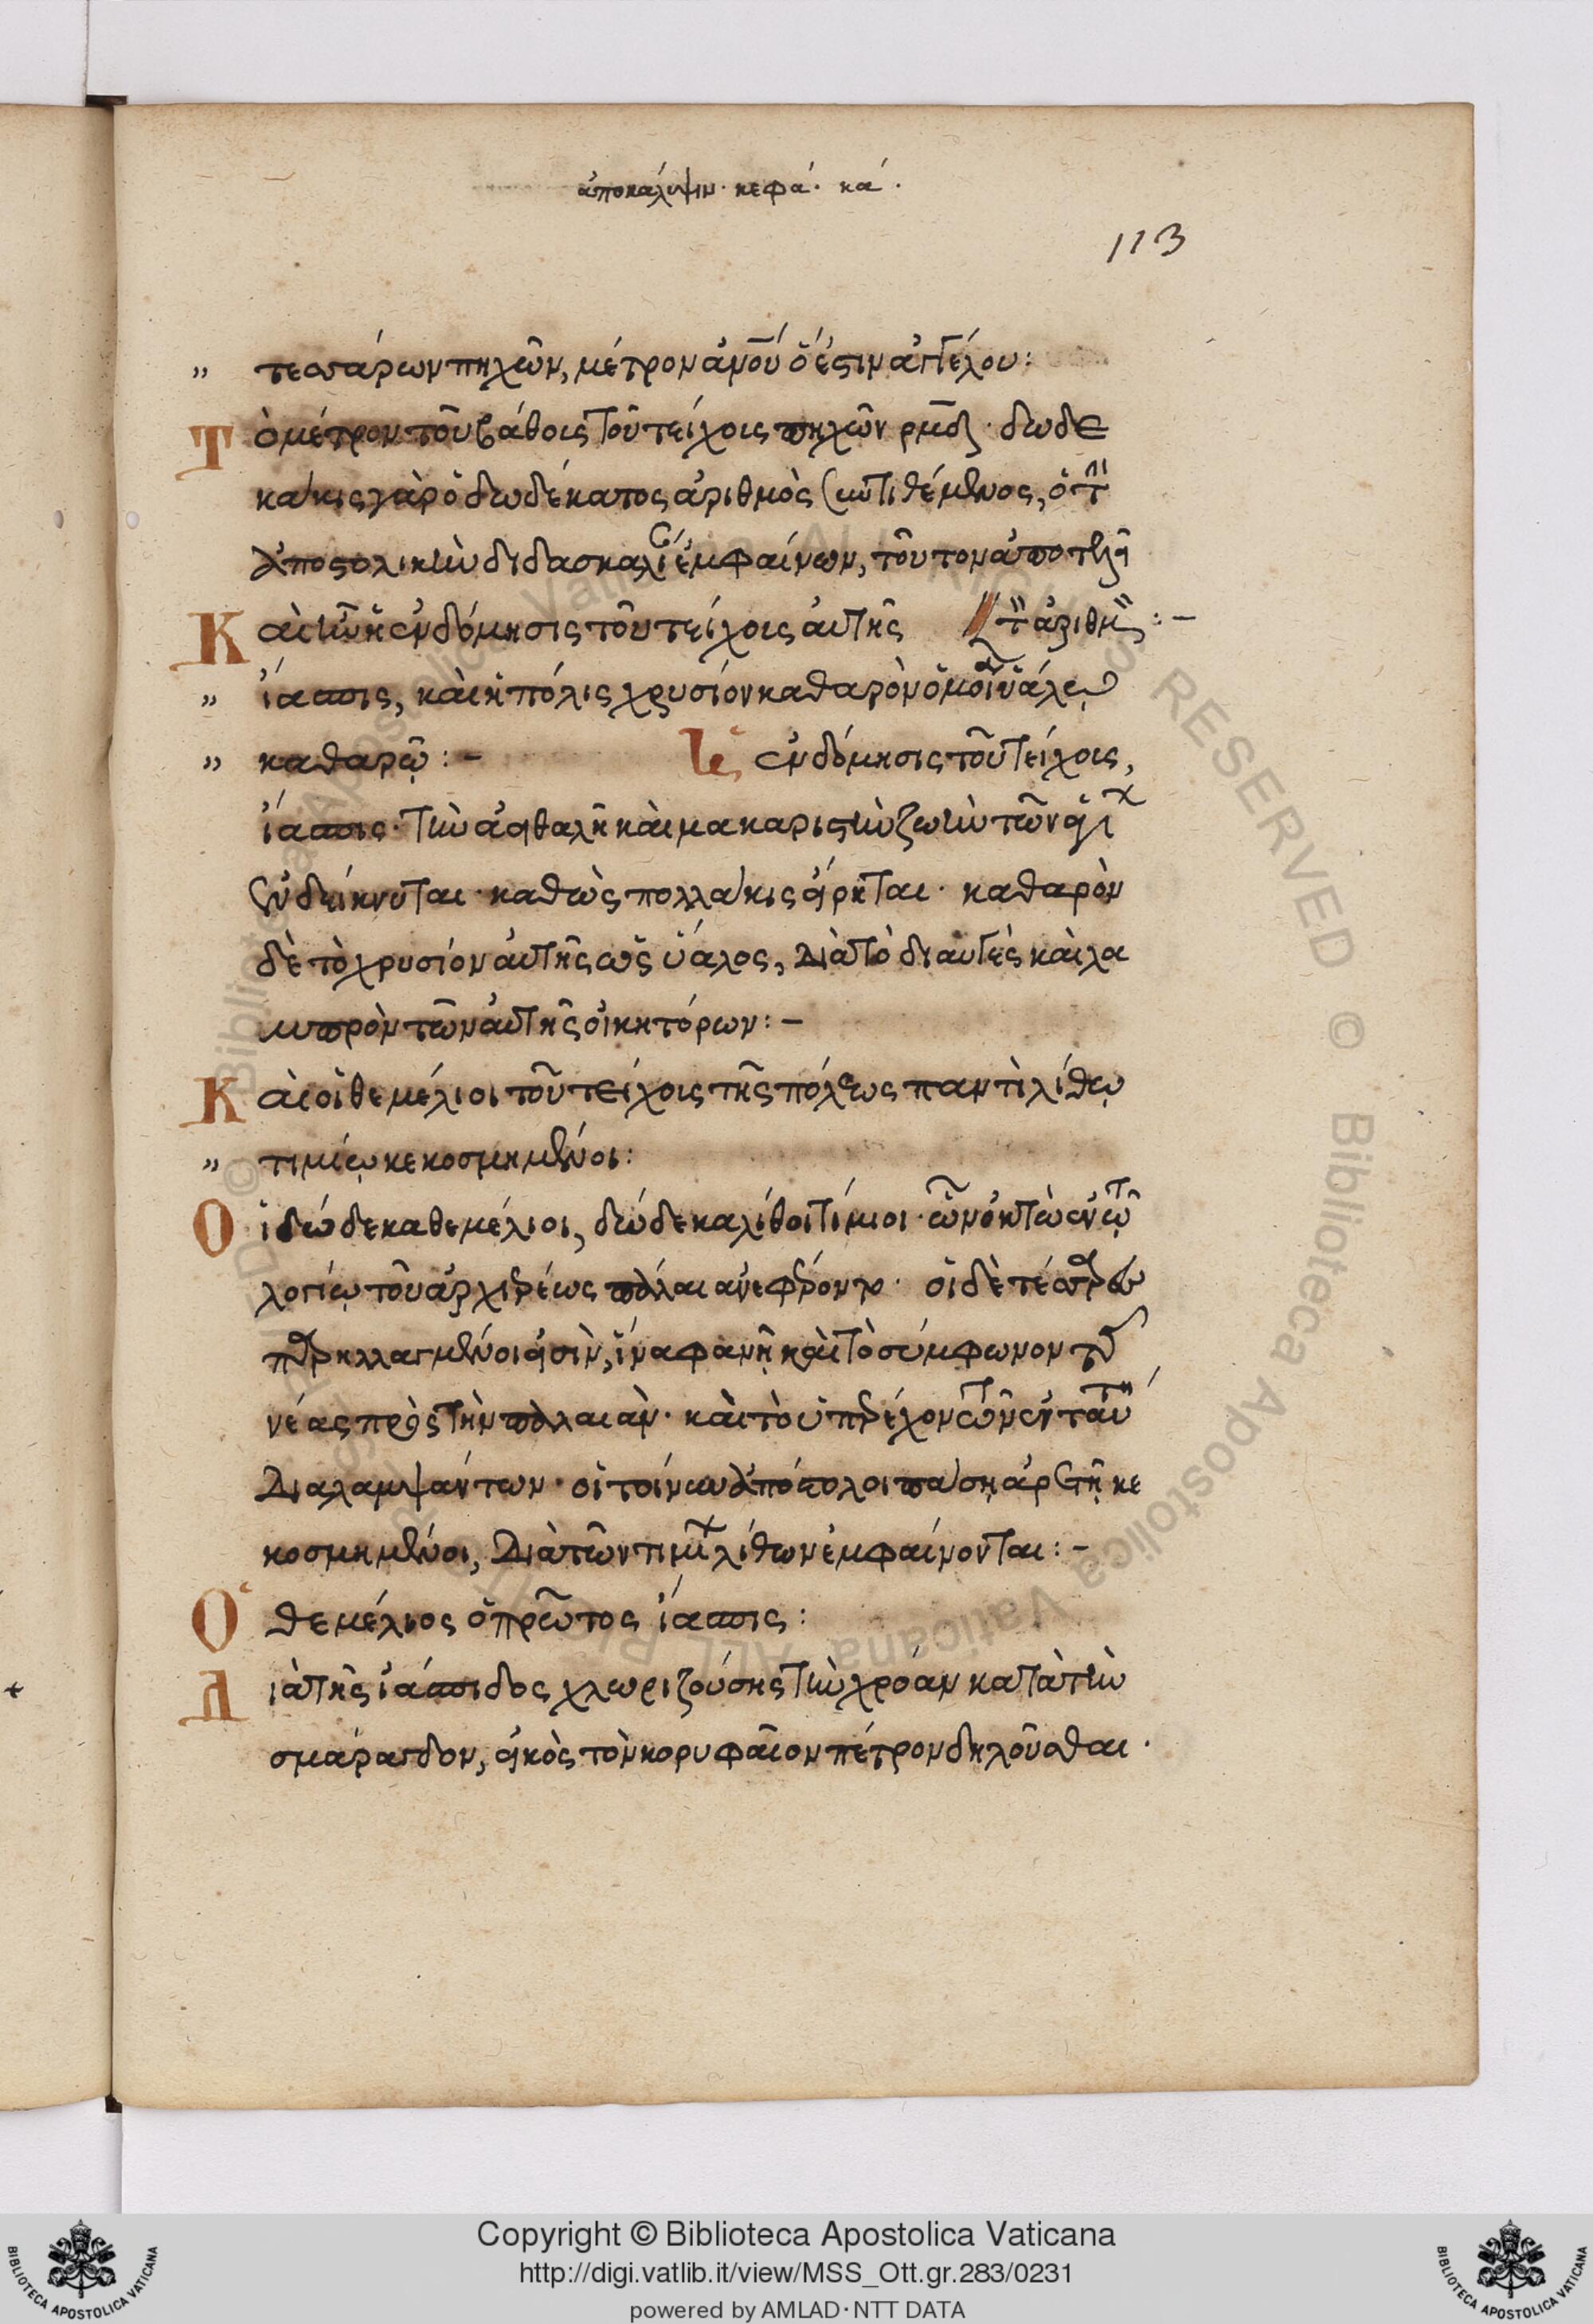 ἀποκάλυψιν· κεφά· κά·
113
" τεσσάρων πηχῶν, μέτρον ἀνου ὅ ἐστιν ἀγγέλου:
Τὸ μέτρον τοῦ βάθους τοῦ τείχους πηχῶν ρμδ· δωδε
κάκις γὰρ ὁ δωδέκατος ἀριθμὸς συντιθέμενος, ὁ τ
ἀποστολικὴν διδασκαλί ἐμφαίνων, τοῦτον ἀποτελεῖ
Καὶ ἦν ἡ ἐνδόμησις τοῦ τείχους αὐτῆς τ ἀριθμ:-
" ἴασπις, καὶ ἡ πόλις χρυσίον καθαρὸν ὅμοι ὑάλῳ
" καθαρῷ:- ἐνδόμησις τοῦ τείχους,
ἴασπις· τὴν ἀειθαλῆ καὶ μακαριστὴν ζωὴν τῶν ἁγι
ἐνδείκνυται· καθὼς πολλάκις εἴρηται· καθαρὸν
δὲ τὸ χρυσίον αὐτῆς ὡς ὕαλος, διὰ τὸ διαυγὲς καὶ λα
μπρὸν τῶν αὐτῆς οἰκητόρων:-
Καὶ οἱ θεμέλιοι τοῦ τείχους τῆς πόλεως παντὶ λίθῳ
" τιμίῳ κεκοσμημένοι:
Οἱ δώδεκα θεμέλιοι, δώδεκα λίθοι τίμιοι· ὧν ὀκτὼ ἐν τῷ
λογίῳ τοῦ ἀρχιερέως πάλαι ἀνεφέροντο· οἱ δὲ τέσσαρες
παρηλλαγμένοι εἰσὶν, ἵνα φανῇ καὶ τὸ σύμφωνον τῆς
νέας πρὸς τὴν παλαιὰν· καὶ τὸ ὑπερέχον τῶν ἐν ταύτη
διαλαμψάντων· οἱ τοίνυν ἀπόστολοι πάσῃ ἀρετῇ κε
κοσμημένοι, διὰ τῶν τιμί λίθων ἐμφαίνονται:-
Ὁ θεμέλιος ὁ πρῶτος ἴασπις:
Διὰ τῆς ἰάσπιδος χλωριζούσης τὴν χρόαν κατὰ τὴν
σμάραγδον, εἰκὸς τὸν κορυφαῖον πέτρον δηλοῦσθαι·
Copyright © Biblioteca Apostolica Vaticana
http://digi.vatlib.it/view/MSS_Ott.gr.283/0231
powered by AMLAD·NTT DATA
BIBLIOTECA APOSTOLICA VATICANA
BIBLIOTECA APOSTOLICA VATICANA